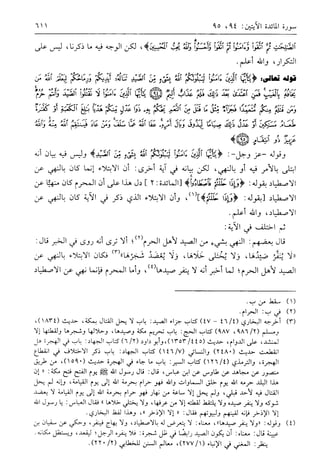 سورة المائدة الآيتين: ٩٤، ٩٥ ٦١١
الصَّلِحَتِ ثُمَّ اتَّقَوا وَّءَامَنُوا ثُمَّ اتَّقَوا وَّأَحْسَنُوا وَاللَّهُ يُحِبُّ الْمُحْسِنِينَ﴾، لكن الوجه فيه ما ذكرنا، ليس على
التكرار، والله أعلم.
قوله تعالى: ﴿يَٰٓأَيُّهَا الَّذِينَ ءَامَنُوا لَيَبْلُوَنَّكُمُ اللَّهُ بِشَيْءٍ مِّنَ الصَّيْدِ تَنَالُهُۥٓ أَيْدِيكُمْ وَرِمَاحُكُمْ لِيَعْلَمَ اللَّهُ مَن
يَخَافُهُۥ بِالْغَيْبِ فَمَنِ اعْتَدَىٰ بَعْدَ ذَٰلِكَ فَلَهُۥ عَذَابٌ أَلِيمٌ ﴿٩٤﴾ يَٰٓأَيُّهَا الَّذِينَ ءَامَنُوا لَا تَقْتُلُوا الصَّيْدَ وَأَنتُمْ حُرُمٌ
وَمَن قَتَلَهُۥ مِنكُم مُّتَعَمِّدًا فَجَزَآءٌ مِّثْلُ مَا قَتَلَ مِنَ النَّعَمِ يَحْكُمُ بِهِۦ ذَوَا عَدْلٍ مِّنكُمْ هَدْيًۢا بَٰلِغَ الْكَعْبَةِ أَوْ كَفَّٰرَةٌ
طَعَامُ مَسَٰكِينَ أَوْ عَدْلُ ذَٰلِكَ صِيَامًا لِّيَذُوقَ وَبَالَ أَمْرِهِۦ عَفَا اللَّهُ عَمَّا سَلَفَ وَمَنْ عَادَ فَيَنتَقِمُ اللَّهُ مِنْهُ وَاللَّهُ
عَزِيزٌ ذُو انتِقَامٍ ﴿٩٥﴾﴾
وقوله -عز وجل-: ﴿يَٰٓأَيُّهَا الَّذِينَ ءَامَنُوا لَيَبْلُوَنَّكُمُ اللَّهُ بِشَيْءٍ مِّنَ الصَّيْدِ﴾ وليس فيه بيان أنه
ابتلى بالأمر فيه أو بالنهي، لكن بيانه في آية أخرى: أن الابتلاء إنما كان بالنهي عن
الاصطياد بقوله: ﴿وَإِذَا حَلَلْتُمْ فَاصْطَادُوا﴾ [المائدة: ٢] دل هذا على أن المحرم كان منهيًّا عن
الاصطياد [بقوله: ﴿وَإِذَا حَلَلْتُمْ﴾](١)، وأن الابتلاء الذي ذكر في الآية كان بالنهي عن
الاصطياد، والله أعلم.
ثم اختلف في الآية:
قال بعضهم: النهي بشيء من الصيد لأهل الحرم(٢)؛ ألا ترى أنه روى في الخبر قال:
«لا يُنَفَّرُ صَيْدُهَا، وَلَا يُخْتَلى خَلَاهَا، وَلَا يُعْضَدُ شَجَرُهَا»(٣) فكان الابتلاء بالنهي عن
الصيد لأهل الحرم؛ لما أخبر أنه لا ينفر صيدها(٤)، وأما المحرم فإنما نهي عن الاصطياد
(١) سقط من ب.
(٢) في ب: الحرام.
(٣) أخرجه البخاري (٤/ ٤٦ - ٤٧) كتاب جزاء الصيد: باب لا يحل القتال بمكة، حديث (١٨٣٤)،
ومسلم (٢/ ٩٨٦، ٩٨٧) كتاب الحج: باب تحريم مكة وصيدها، وخلاها وشجرها ولقطتها إلا
لمنشد، على الدوام، حديث (٤٤٥/ ١٣٥٣)، وأبو داود (٦/٢) كتاب الجهاد: باب في الهجرة هل
انقطعت حديث (٢٤٨٠) والنسائي (١٤٦/٧) كتاب الجهاد: باب ذكر الاختلاف في انقطاع
الهجرة، والترمذي (١٢٦/٤) كتاب السير: باب ما جاء في الهجرة حديث (١٥٩٠) من طريق
منصور عن مجاهد عن طاوس عن ابن عباس، قال: قال رسول الله ﷺ يوم الفتح فتح مكة: «إن
هذا البلد حرمه الله يوم خلق السماوات والأرض فهو حرام بحرمة الله إلى يوم القيامة، وإنه لم يحل
القتال فيه لأحد قبلي، ولم يحل إلا ساعة من نهار فهو حرام بحرمة الله إلى يوم القيامة لا يعضد
شوكه ولا ينفر صيده ولا يلتقط لقطته إلا من عرفها، ولا يختلي خلاها» فقال العباس: يا رسول الله
إلا الإذخر فإنه لقينهم ولبيوتهم فقال: «إلا الإذخر»، وهذا لفظ البخاري.
(٤) وقوله: «ولا ينفر صيدها»، معناه: لا يتعرض له بالاصطياد، ولا يهاج فينفر، وحكي عن سفيان بن
عيينة قال: معناه: أن يكون الصيد رابضًا في ظل شجرة: فلا ينفره الرجل؛ ليقعد، ويستظل مكانه.
ينظر: المغني في الإنباء (٢٧٧/١)، معالم السنن للخطابي (٢/ ٢٢٠).